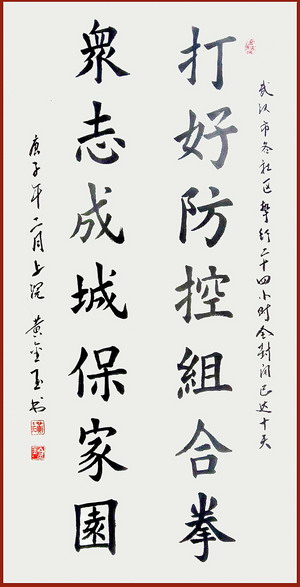 武汉市各社区举行二十四小时全封闭已达十天
打好防控組合拳
眾志成城保家園
庚子年二月上浣黄金玉书